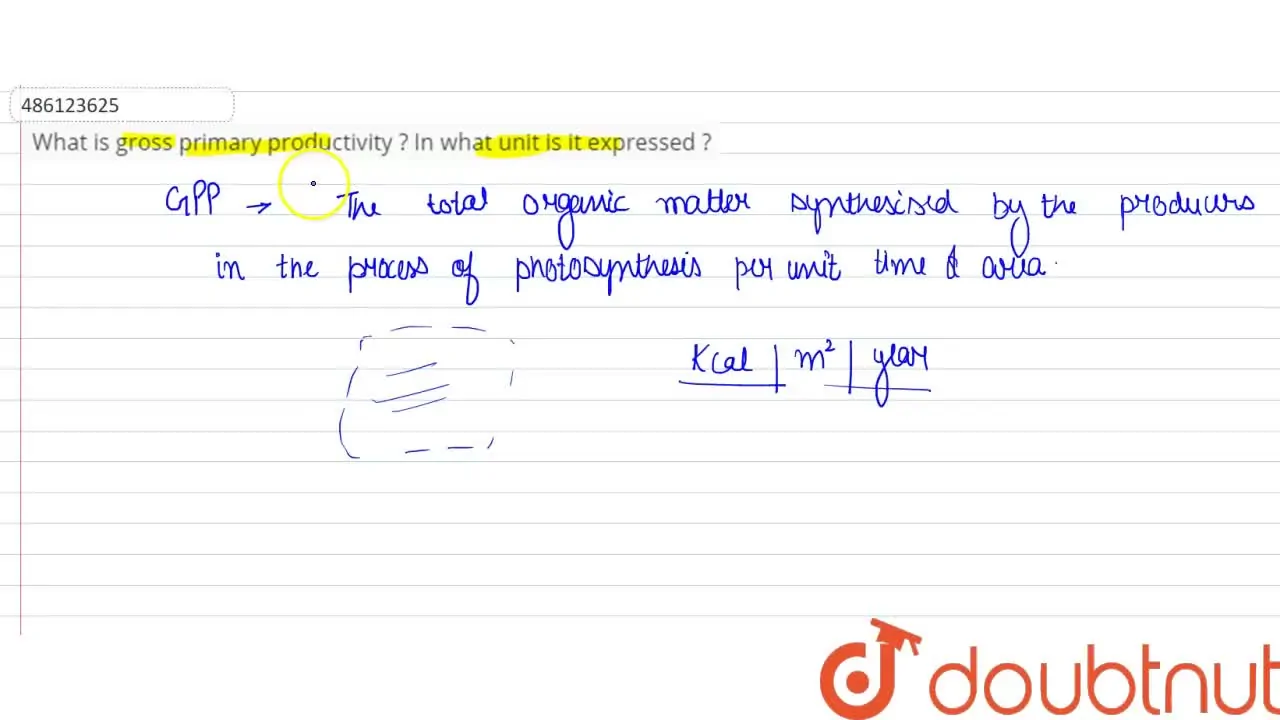 486123625
What is gross primary productivity ? In what unit is it expressed ?
GPP → The total organic matter synthescised by the producers
in the process of photosynthesis per unit time & area.
Kcal | m² | year
doubtnut